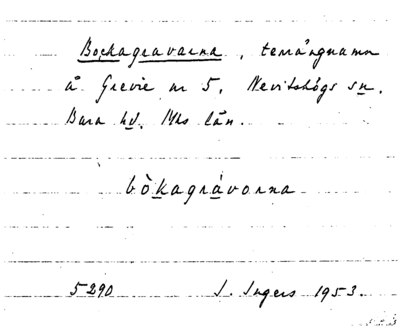 Bockagravarna, terrängnamn
å Grevie nr 5, Nevishögs sn.
Bara hd. Mhs län.
bòkagràvorna
5290 I. Ingers 1953.